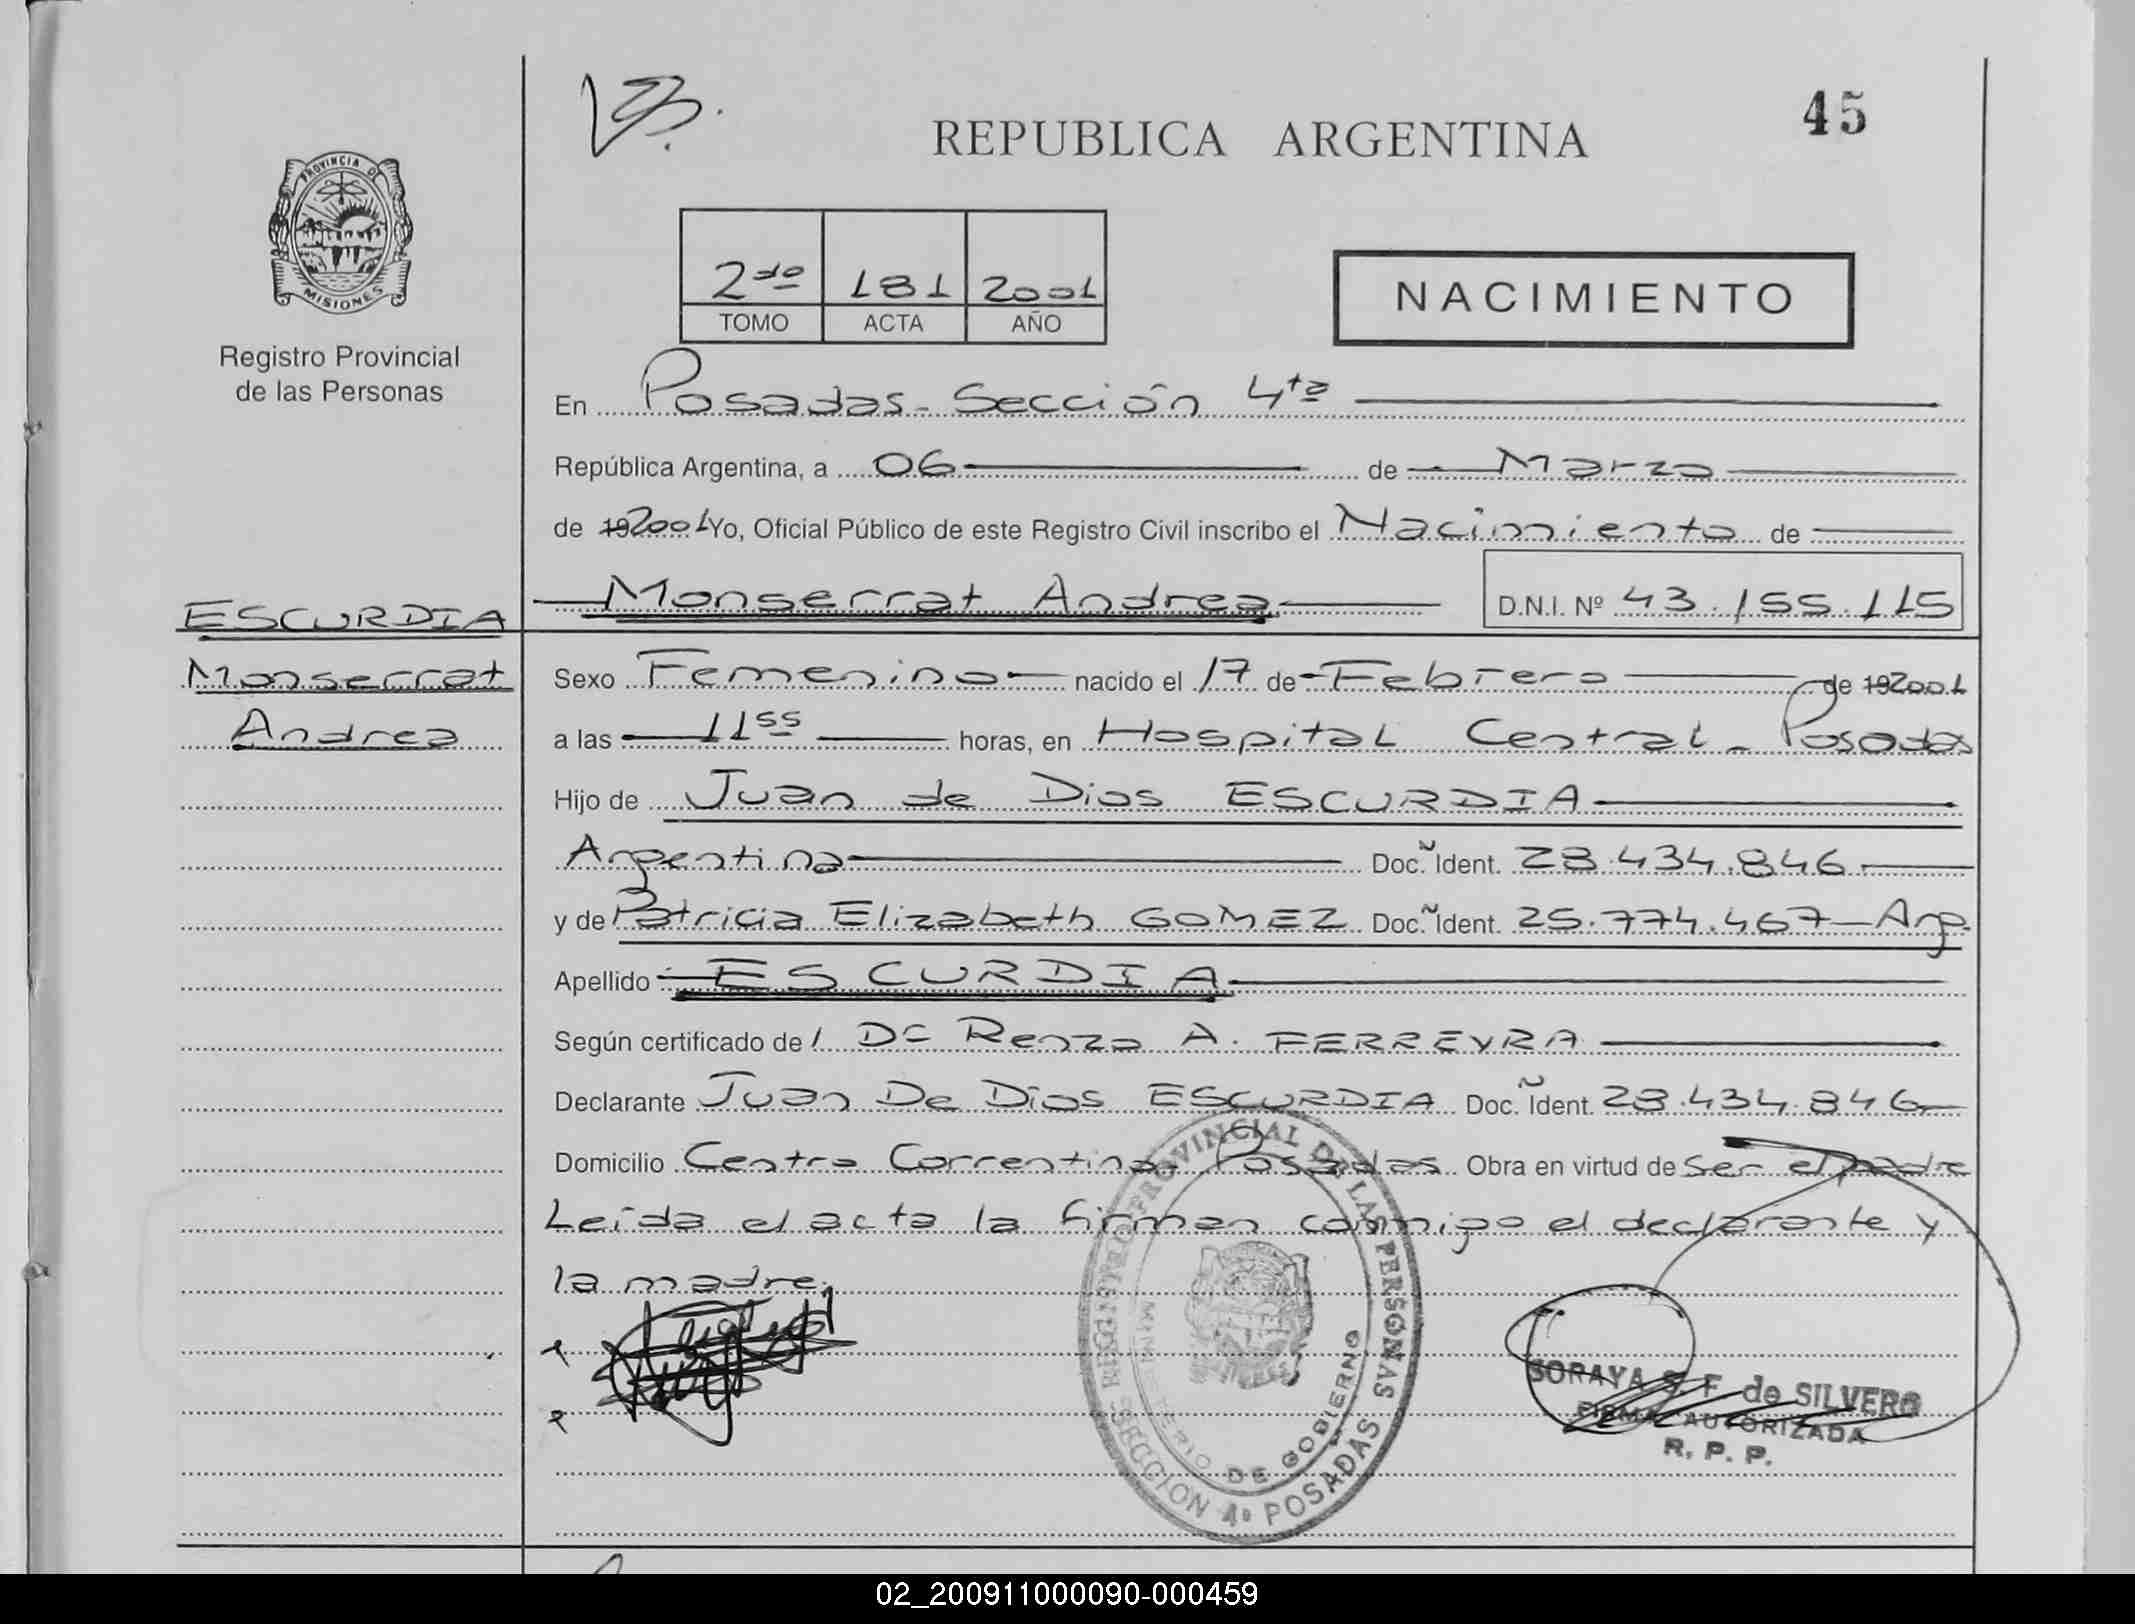 45
REPUBLICA ARGENTINA
PROVINCIA DE
MISIONES
Registro Provincial
de las Personas
2do 181 2001
TOMO ACTA AÑO
NACIMIENTO
En Posadas - Sección 4ta
República Argentina, a 06 de Marzo
de 19 2001 Yo, Oficial Público de este Registro Civil inscribo el Nacimiento de
Monserrat Andrea D.N.I. Nº 43.155.115
ESCURDIA
Monserrat
Andrea
Sexo Femenino nacido el 17 de Febrero de 19 2001
a las 11 55 horas, en Hospital Central - Posadas
Hijo de Juan de Dios ESCURDIA
Argentina Doc. Ident. 23.434.846
y de Patricia Elizabeth GOMEZ Doc. Ident. 25.774.467 - Arg.
Apellido ESCURDIA
Según certificado de / Dr Renzo A. FERREYRA
Declarante Juan De Dios ESCURDIA Doc. Ident. 23.434.846
Domicilio Centro Correntino Posadas Obra en virtud de ser el padre
Leída el acta la firman conmigo el declarante y
la madre.
REGISTRO PROVINCIAL DE LAS PERSONAS
MINISTERIO DE GOBIERNO
SECCION 4ª POSADAS
SORAYA S. F. de SILVERO
FIRMA AUTORIZADA
R. P. P.
02_200911000090-000459